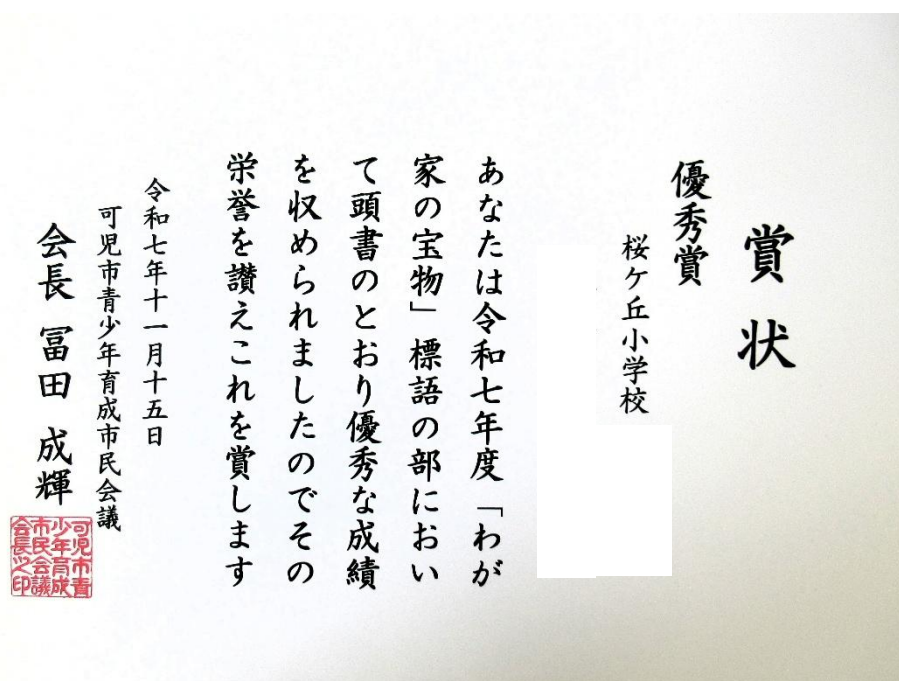 賞状
優秀賞
桜ケ丘小学校
あなたは令和七年度「わが
家の宝物」標語の部におい
て頭書のとおり優秀な成績
を収められましたのでその
栄誉を讃えこれを賞します
令和七年十一月十五日
可児市青少年育成市民会議
会長 冨田 成輝
可児市青
少年育成
市民会議
会長之印